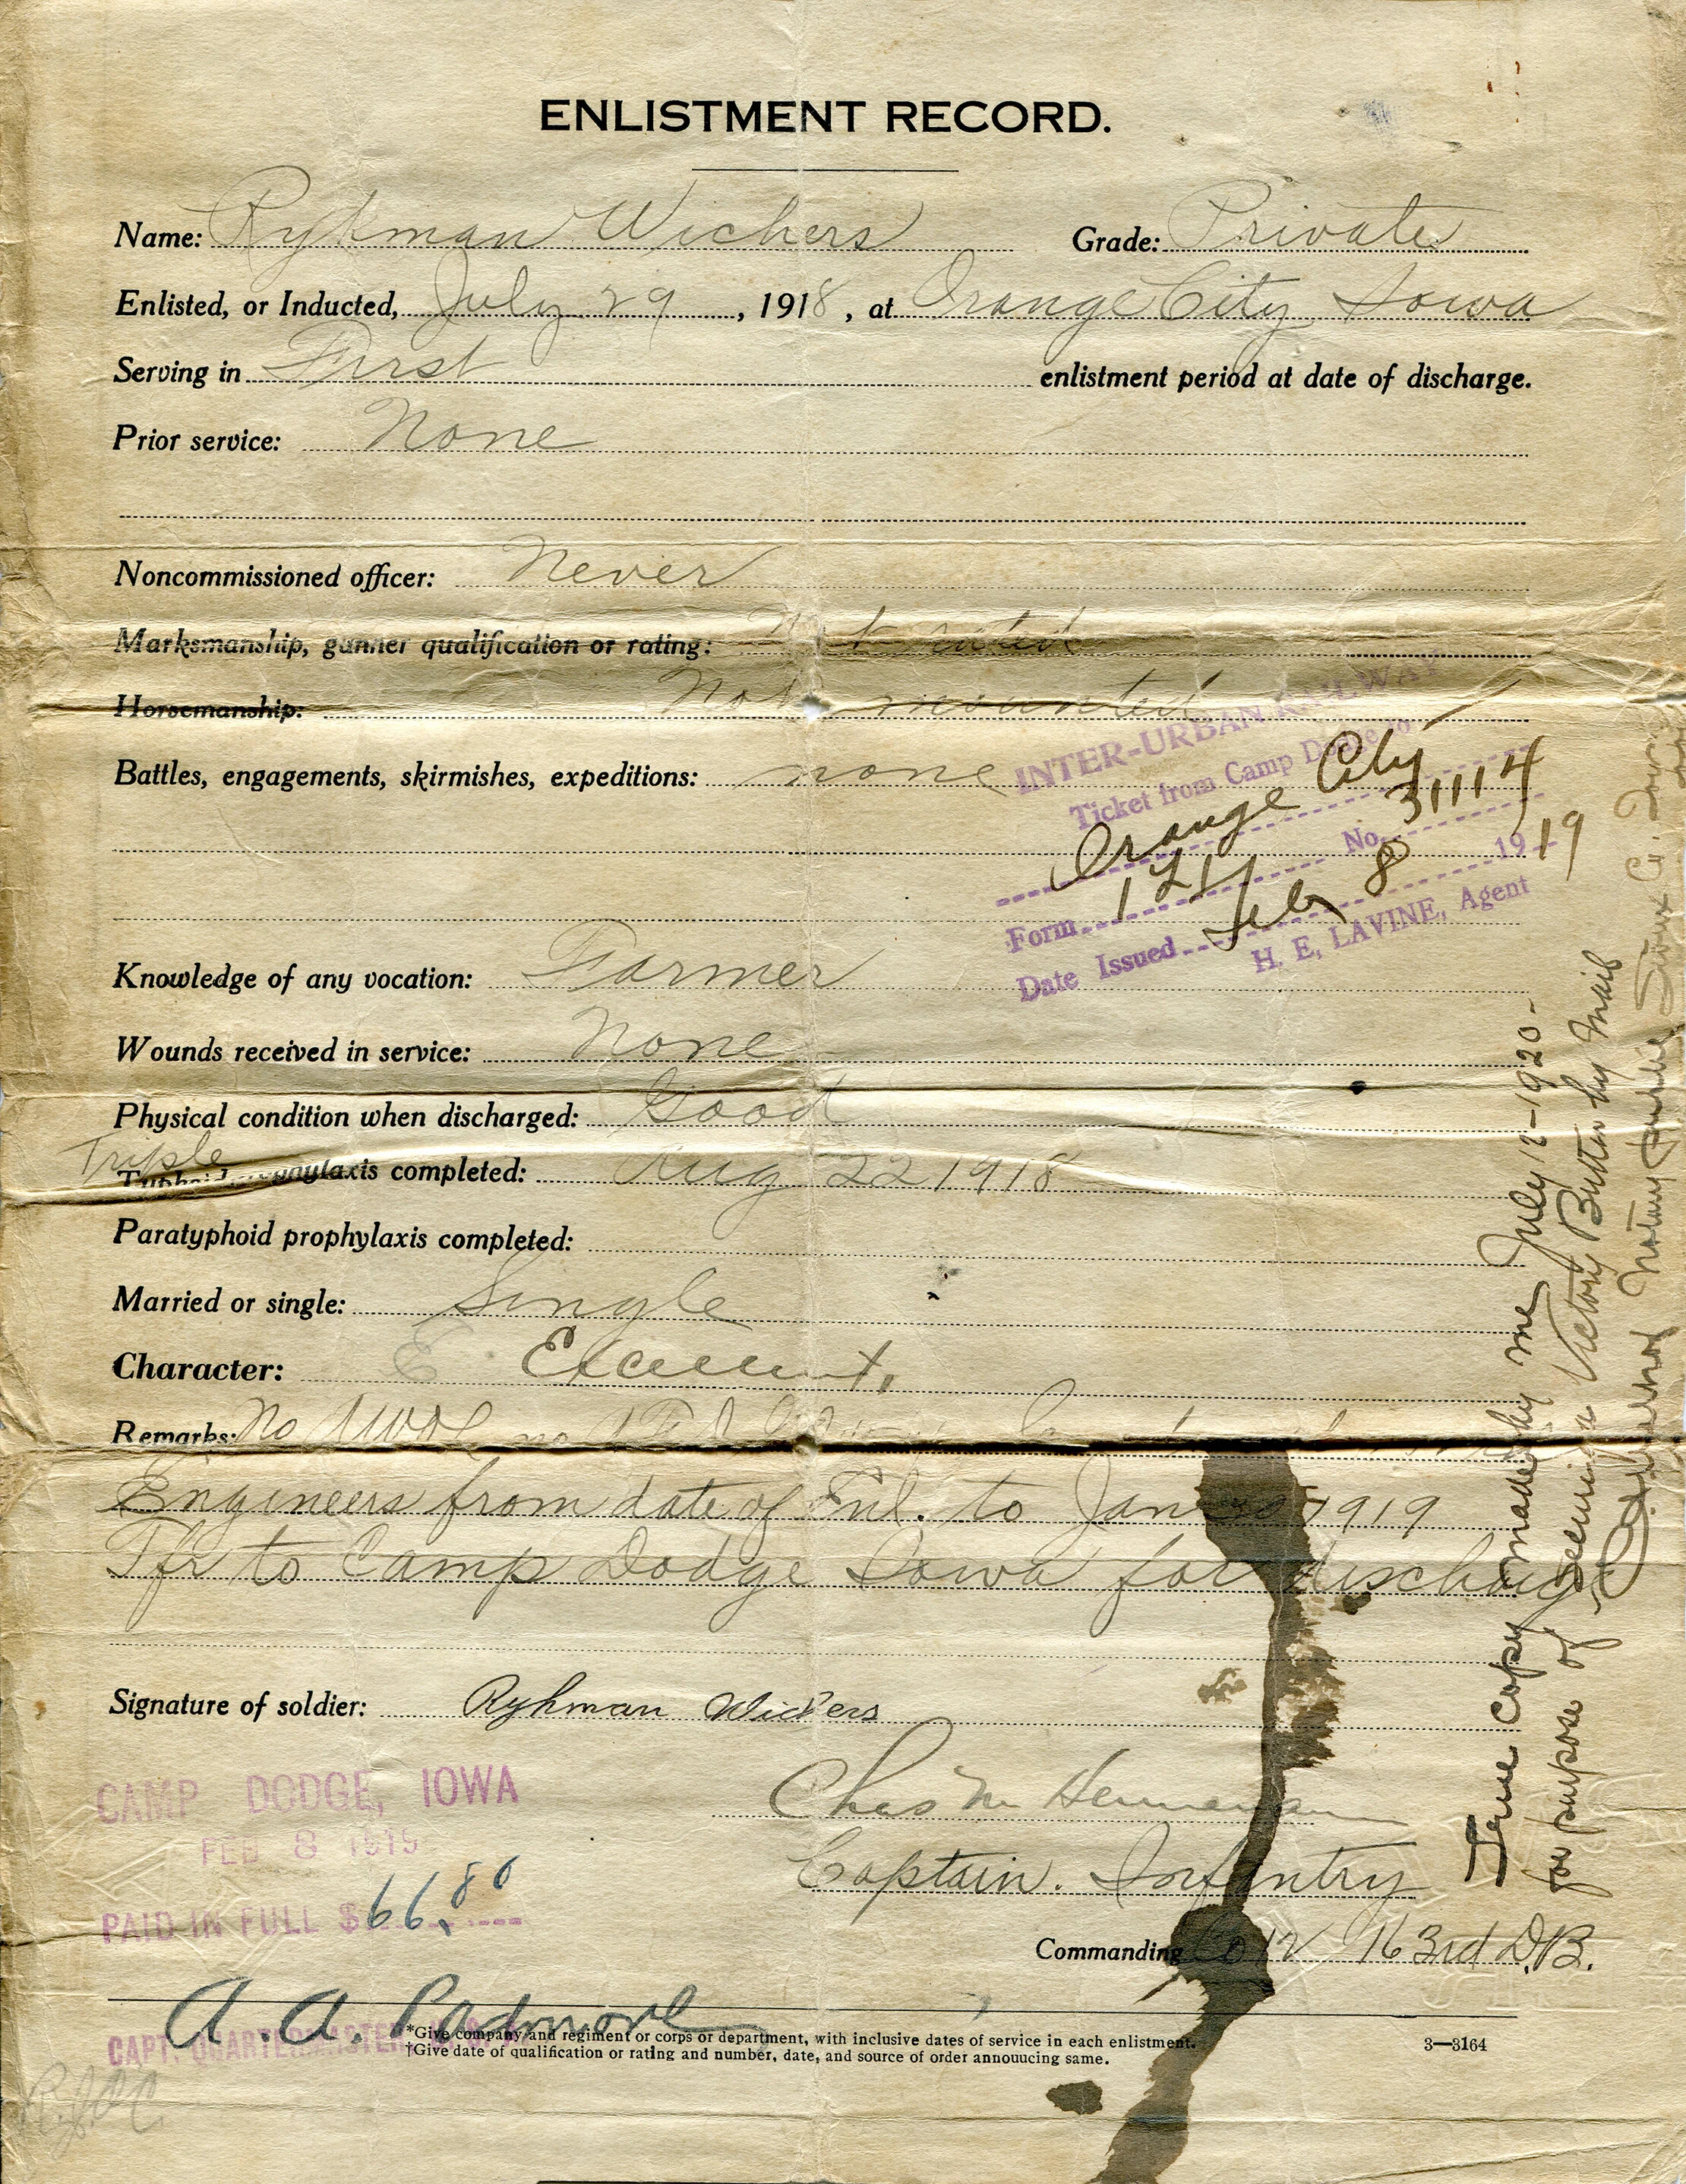 ENLISTMENT RECORD.
Name: Rykman Wichers Grade: Private
Enlisted, or Inducted, July 29, 1918, at Orange City Iowa
Serving in First enlistment period at date of discharge.
Prior service: None
Noncommissioned officer: Never
Marksmanship, gunner qualification or rating: Not rated
Horsemanship: Not mounted
Battles, engagements, skirmishes, expeditions: none
INTER-URBAN RAILWAY
Ticket from Camp Dodge to
Orange City
Form 121 No. 31114
Date Issued Feb 8 1919
H. E. LAVINE, Agent
Knowledge of any vocation: Farmer
Wounds received in service: None
Physical condition when discharged: Good
Triple
Typhoid prophylaxis completed: Aug 22 1918
Paratyphoid prophylaxis completed:
Married or single: Single
Character: E Excellent.
Remarks: No AWOL no
Engineers from date of Enl. to Jan 1919
Tfr to Camp Dodge Iowa for discharge
Signature of soldier: Rykman Wichers
CAMP DODGE, IOWA
FEB 8 1919
PAID IN FULL $66.80
A. A. Padmore
CAPT. QUARTERMASTER
Chas M Henneman
Captain. Infantry
Commanding Co 12 163rd D.B.
*Give company and regiment or corps or department, with inclusive dates of service in each enlistment.
†Give date of qualification or rating and number, date, and source of order annouucing same.
3—3164
True Copy made by me July 12-1920-
for purpose of securing Victory Button by mail
Notary Public Sioux Co. Iowa